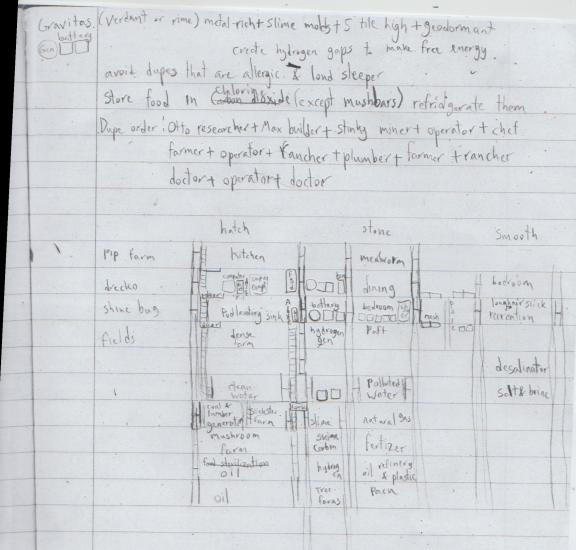 Gravitas. (Verdant or rime) metal rich + Slime molds + 5 tile high + geodormant
battery
Gen
create hydrogen gaps to make free energy.
avoid dupes that are allergic & loud sleeper
Store food in Chlorine Carbon dioxide (except mushbars) refridgerate them
Dupe order: Otto researcher + Max builder + stinky miner + operator + chef
farmer + operator + rancher + plumber + farmer + rancher
doctor + operator + doctor
hatch stone smooth
Pip farm kitchen mealworm
drecko computer super comp dining bedroom
shine bug sink battery bedroom mush longhair slick recreation
fields dense farm hydrogen gen
desalinator
clean water Polluted water salt & brine
coal & lumber generator slickster farm slime natural gas
mushroom farm Fertizer
food sterilization hydrog oil refinery & plastic
oil
oil Tree farms